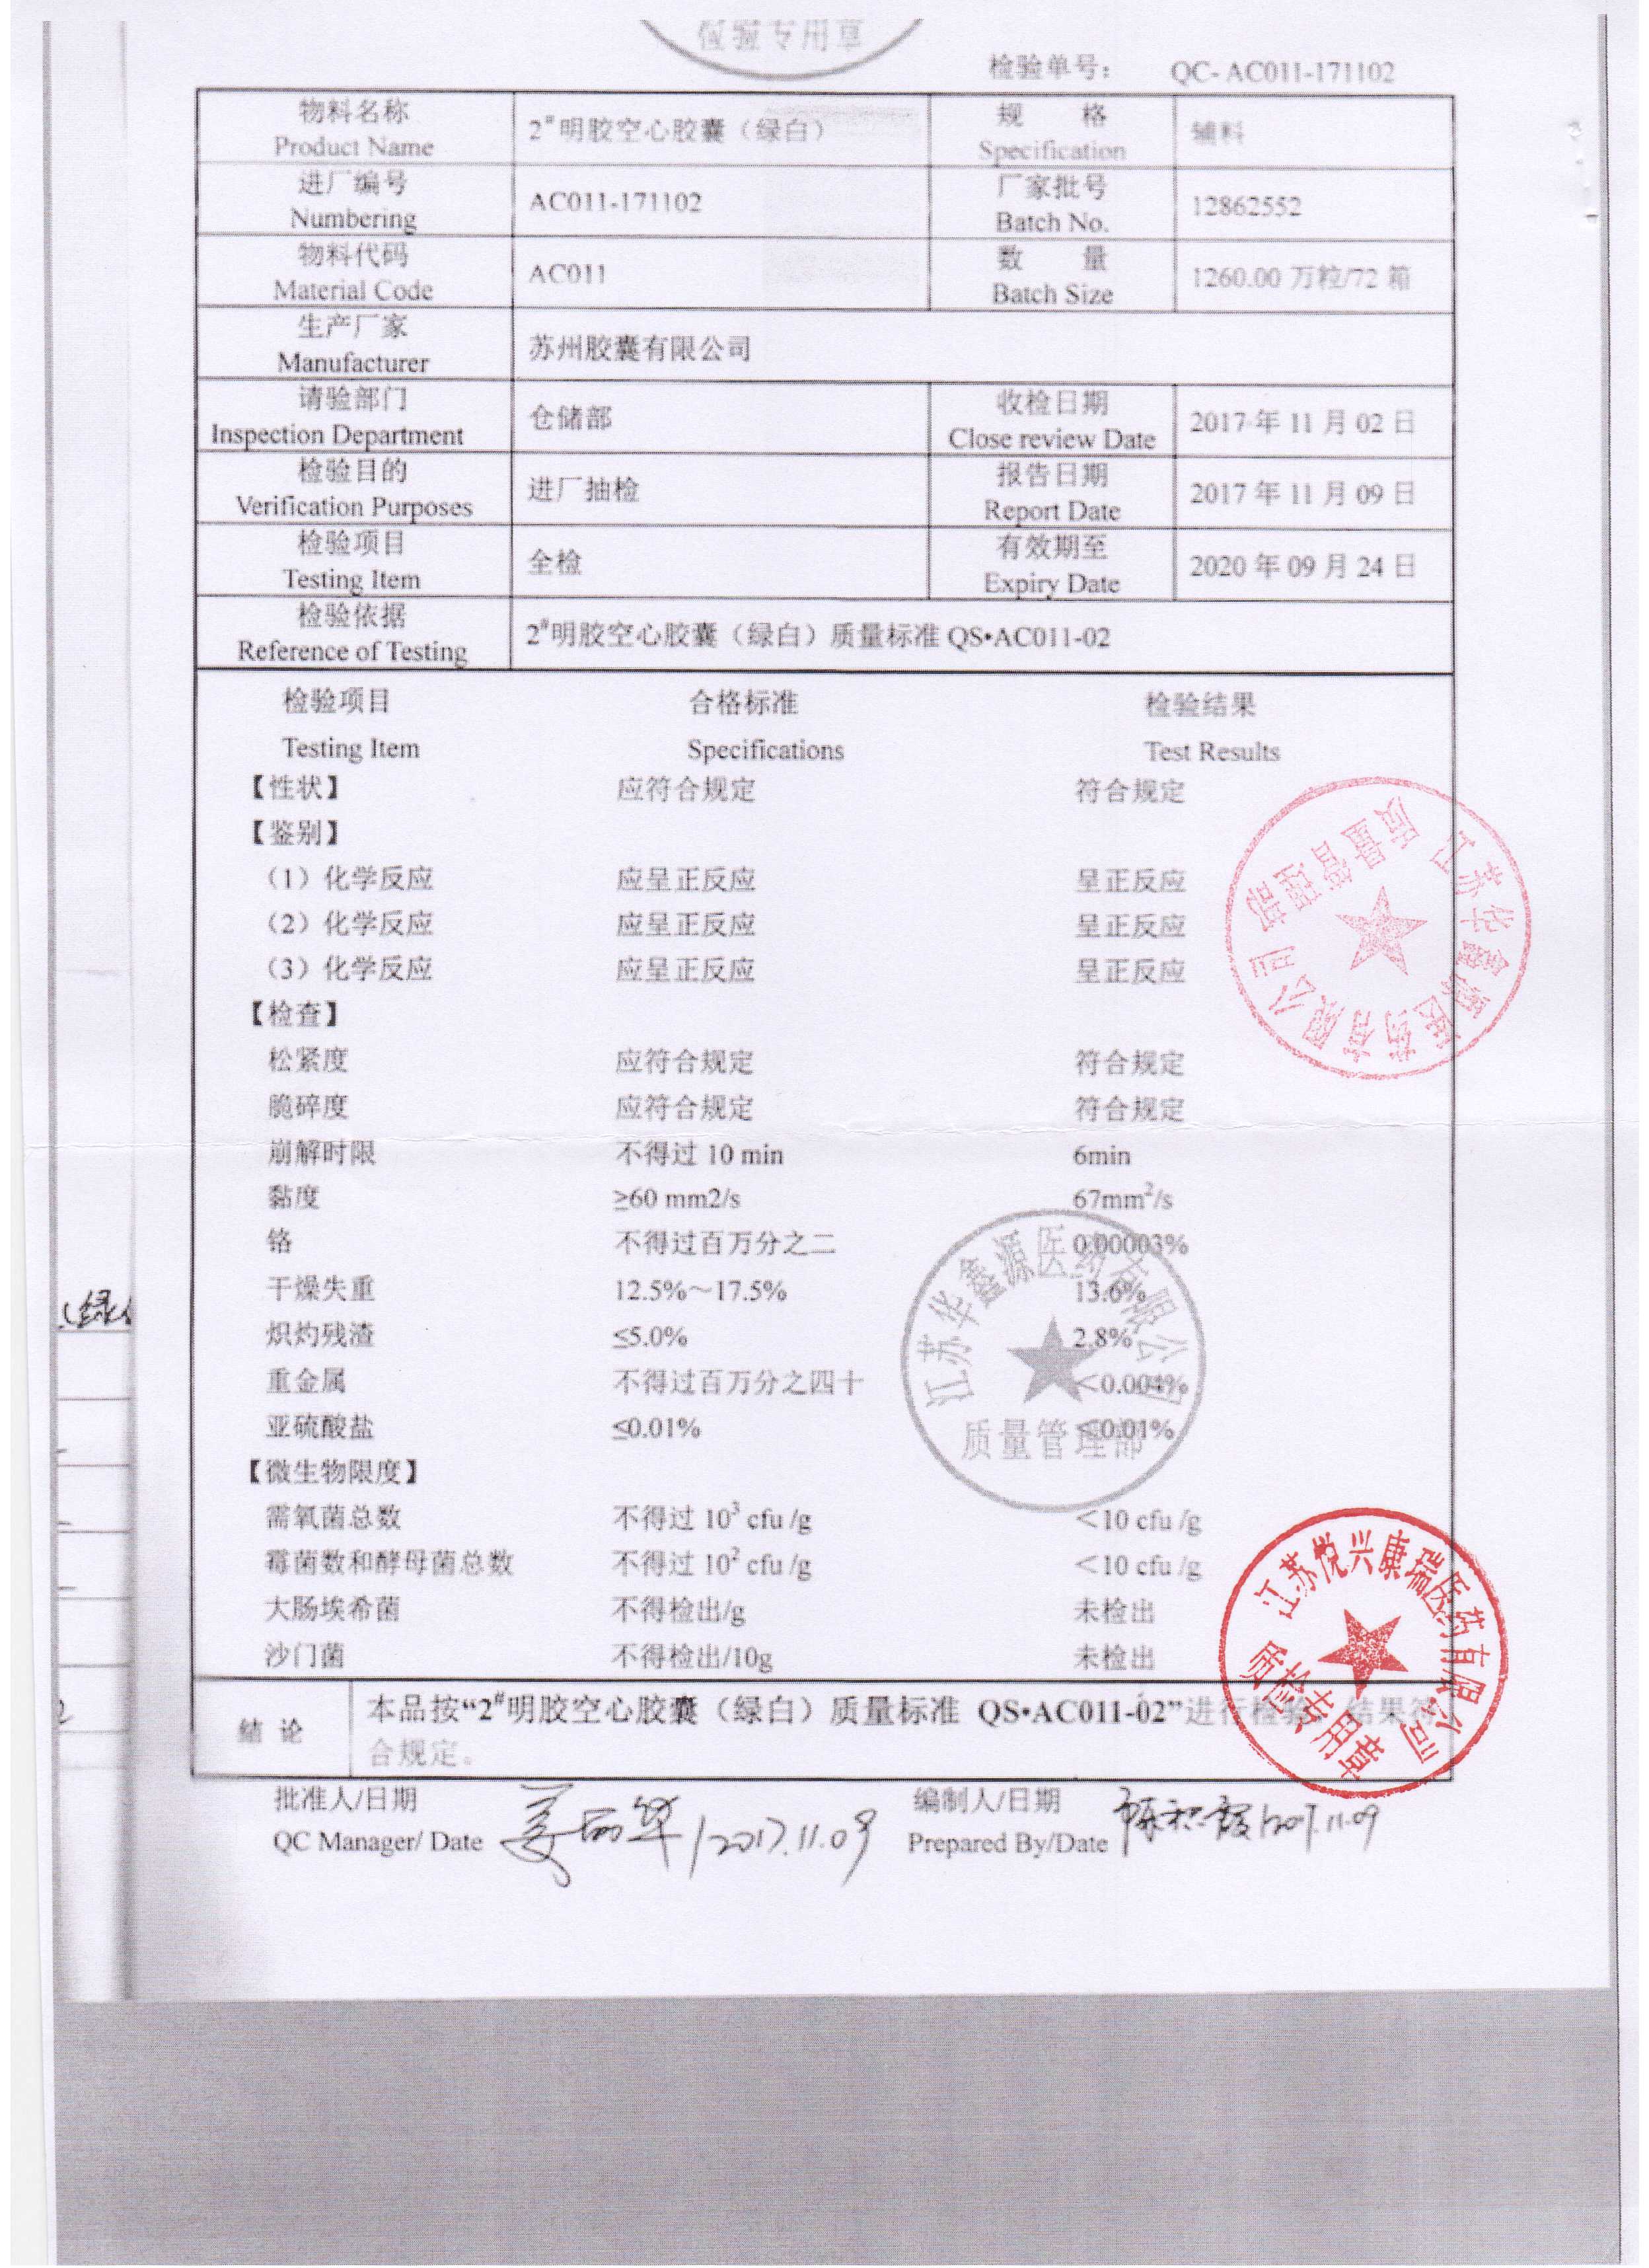 检验专用章
检验单号： QC- AC011-171102
物料名称 2#明胶空心胶囊（绿白） 规 格 辅料
Product Name Specification
进厂编号 AC011-171102 厂家批号 12862552
Numbering Batch No.
物料代码 AC011 数 量 1260.00 万粒/72 箱
Material Code Batch Size
生产厂家 苏州胶囊有限公司
Manufacturer
请验部门 仓储部 收检日期 2017 年 11 月 02 日
Inspection Department Close review Date
检验目的 进厂抽检 报告日期 2017 年 11 月 09 日
Verification Purposes Report Date
检验项目 全检 有效期至 2020 年 09 月 24 日
Testing Item Expiry Date
检验依据 2#明胶空心胶囊（绿白）质量标准 QS•AC011-02
Reference of Testing
检验项目 合格标准 检验结果
Testing Item Specifications Test Results
【性状】 应符合规定 符合规定
【鉴别】
（1）化学反应 应呈正反应 呈正反应
（2）化学反应 应呈正反应 呈正反应
（3）化学反应 应呈正反应 呈正反应
【检查】
松紧度 应符合规定 符合规定
脆碎度 应符合规定 符合规定
崩解时限 不得过 10 min 6min
黏度 ≥60 mm2/s 67mm²/s
铬 不得过百万分之二 0.00003%
干燥失重 12.5%～17.5% 13.6%
炽灼残渣 ≤5.0% 2.8%
重金属 不得过百万分之四十 ＜0.004%
亚硫酸盐 ≤0.01% ≤0.01%
【微生物限度】
需氧菌总数 不得过 10³ cfu /g ＜10 cfu /g
霉菌数和酵母菌总数 不得过 10² cfu /g ＜10 cfu /g
大肠埃希菌 不得检出/g 未检出
沙门菌 不得检出/10g 未检出
结 论 本品按“2#明胶空心胶囊（绿白）质量标准 QS•AC011-02”进行检验，结果符
合规定。
批准人/日期 编制人/日期
QC Manager/ Date 姜丽华/2017.11.09 Prepared By/Date 2017.11.09
江苏华鑫源医药有限公司
质量管理部
江苏华鑫源医药有限公司
质量管理部
江苏悦兴康瑞医药有限公司
质检专用章
(绿